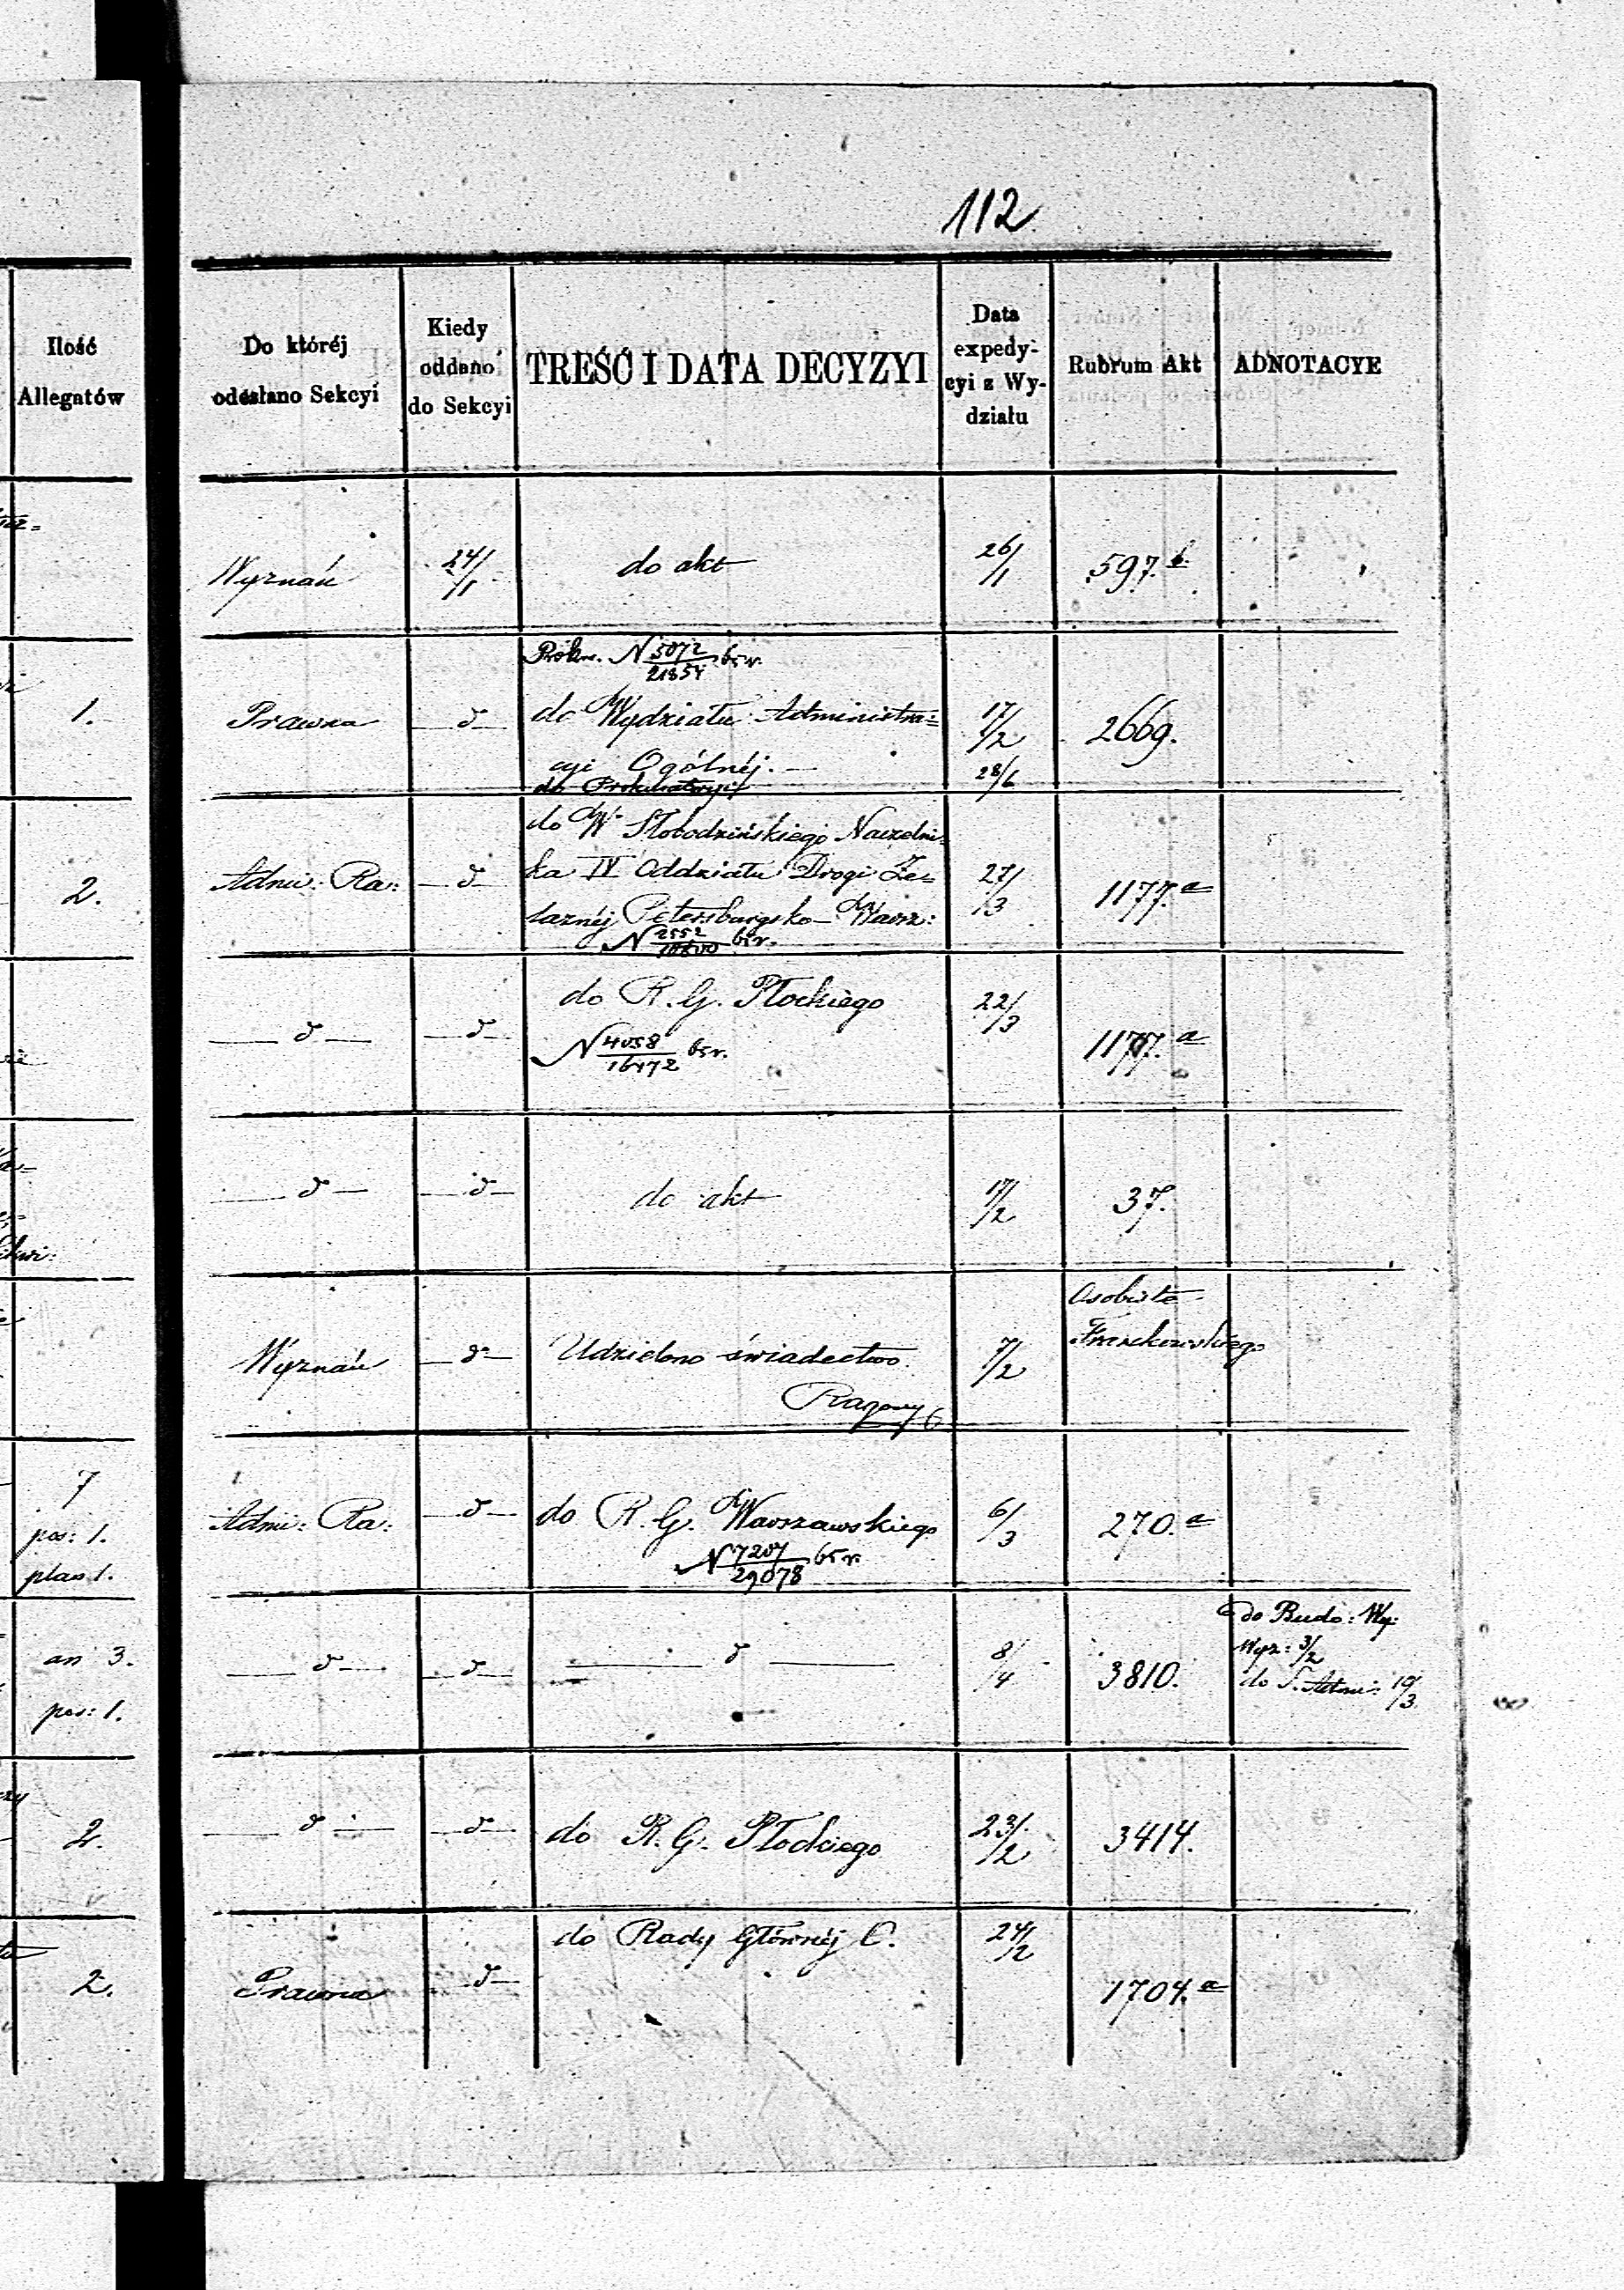 112.
Ilość
Allegatów
Do któréj
odesłano Sekcyi
Kiedy
oddano
do Sekcyi
TREŚĆ I DATA DECYZYI
Data
expedy-
cyi z Wy-
działu
Rubrum Akt
ADNOTACYE
Wyznań
24/1
do akt
26/1
597.b.
1.
Prawna
d
N 5072/21854 65 r.
do Wydziału Administra=
cyi Ogólnéj.
do Prokuratoryi
17/2
28/6
2669.
2.
Adm: Ra:
d
do W Słobodzińskiego Naczelni=
ka IV Oddziału Drogi Że=
laznéj Petersburgsko-Warsz:
N 2552/10600 65 r.
27/3
1177.a
d
d
do R. G. Płockiego
N 4058/16472 65 r.
22/3
1177.a
d
d
do akt
17/2
37.
Wyznań
d
Udzielono świadectwo.
7/2
Osobiste
7
pos: 1.
plan 1.
Admi: Ra:
d
do R. G. Warszawskiego
N 7207/29078 65 r.
6/3
270.a
an 3.
pos: 1.
d
d
d
8/4
3810.
do Budo: Wy:
Wyz: 3/2
do S. Admi: 19/3
2.
d
d
do R. G. Płockiego
23/2
3414.
2.
Prawna
d
do Rady Głównéj O.
24/2
1704.a